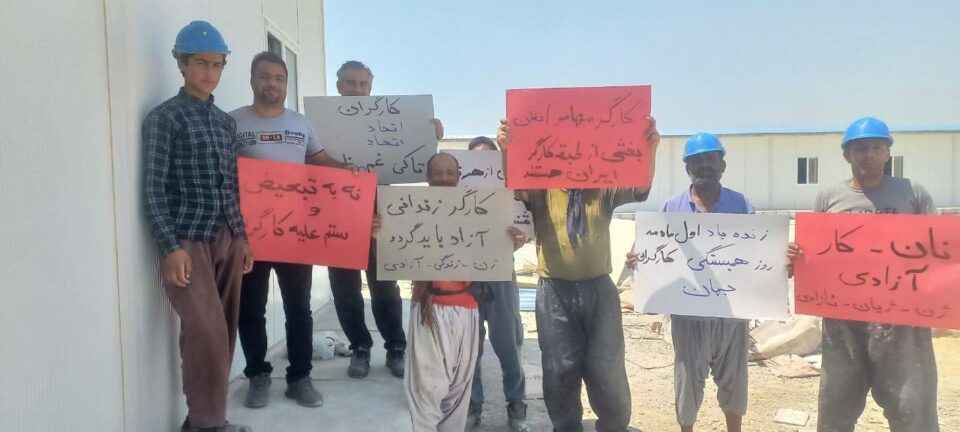 نه به تبعیض
و
ستم علیه کارگر
کارگران
اتحاد
اتحاد
تاکی غم
کارگر زندانی
آزاد باید گردد
زن - زندگی - آزادی
کارگر مهاجر افغان
بخشی از طبقه کارگر
ایران هستند
زنده باد اول ماه مه
روز همبستگی کارگران
جهان
نان - کار
آزادی
ژن - ژیان - ئازادی
DIGITAL